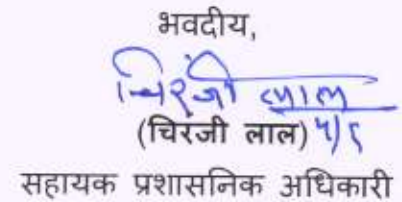 भवदीय,
चिरंजी लाल
(चिरंजी लाल) 5/9
सहायक प्रशासनिक अधिकारी